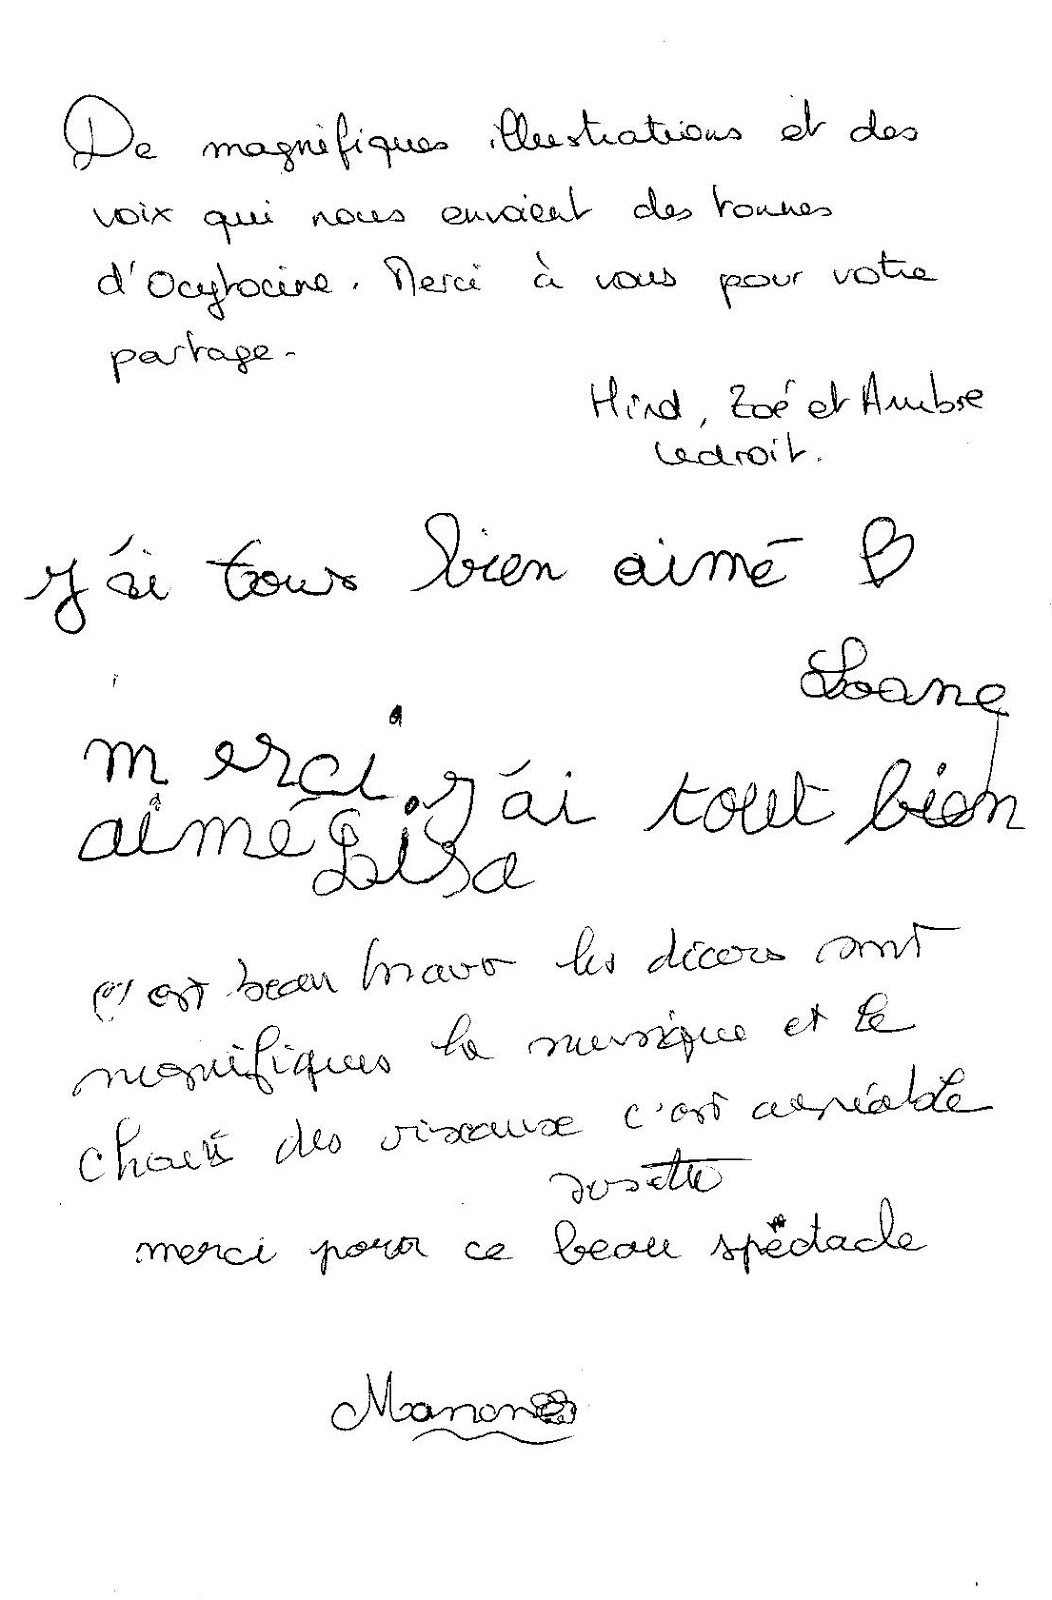 De magnifiques illustrations et des
voix qui nous envoient des tonnes
d'Ocytocine. Merci à vous pour votre
partage.
Hind, Zoé et Ambre
Ledroit.
j'ai tous bien aimé
Loane
merci. j'ai tout bien
aimé Lisa
c'est beau bravo les décors sont
magnifiques la musique et le
chant des oiseaux c'est agréable
Josette
merci pour ce beau spectacle
Manon